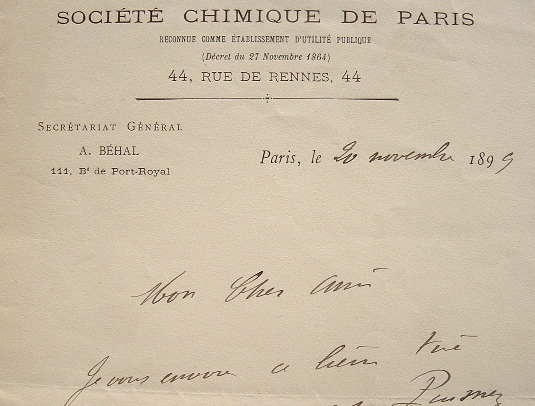 SOCIÉTÉ CHIMIQUE DE PARIS
RECONNUE COMME ÉTABLISSEMENT D'UTILITÉ PUBLIQUE
(Décret du 27 Novembre 1864)
44, RUE DE RENNES, 44
SECRÉTARIAT GÉNÉRAL
A. BÉHAL
111, Bd de Port-Royal
Paris, le 20 novembre 1899
Mon Cher Ami
Je vous envoie ce